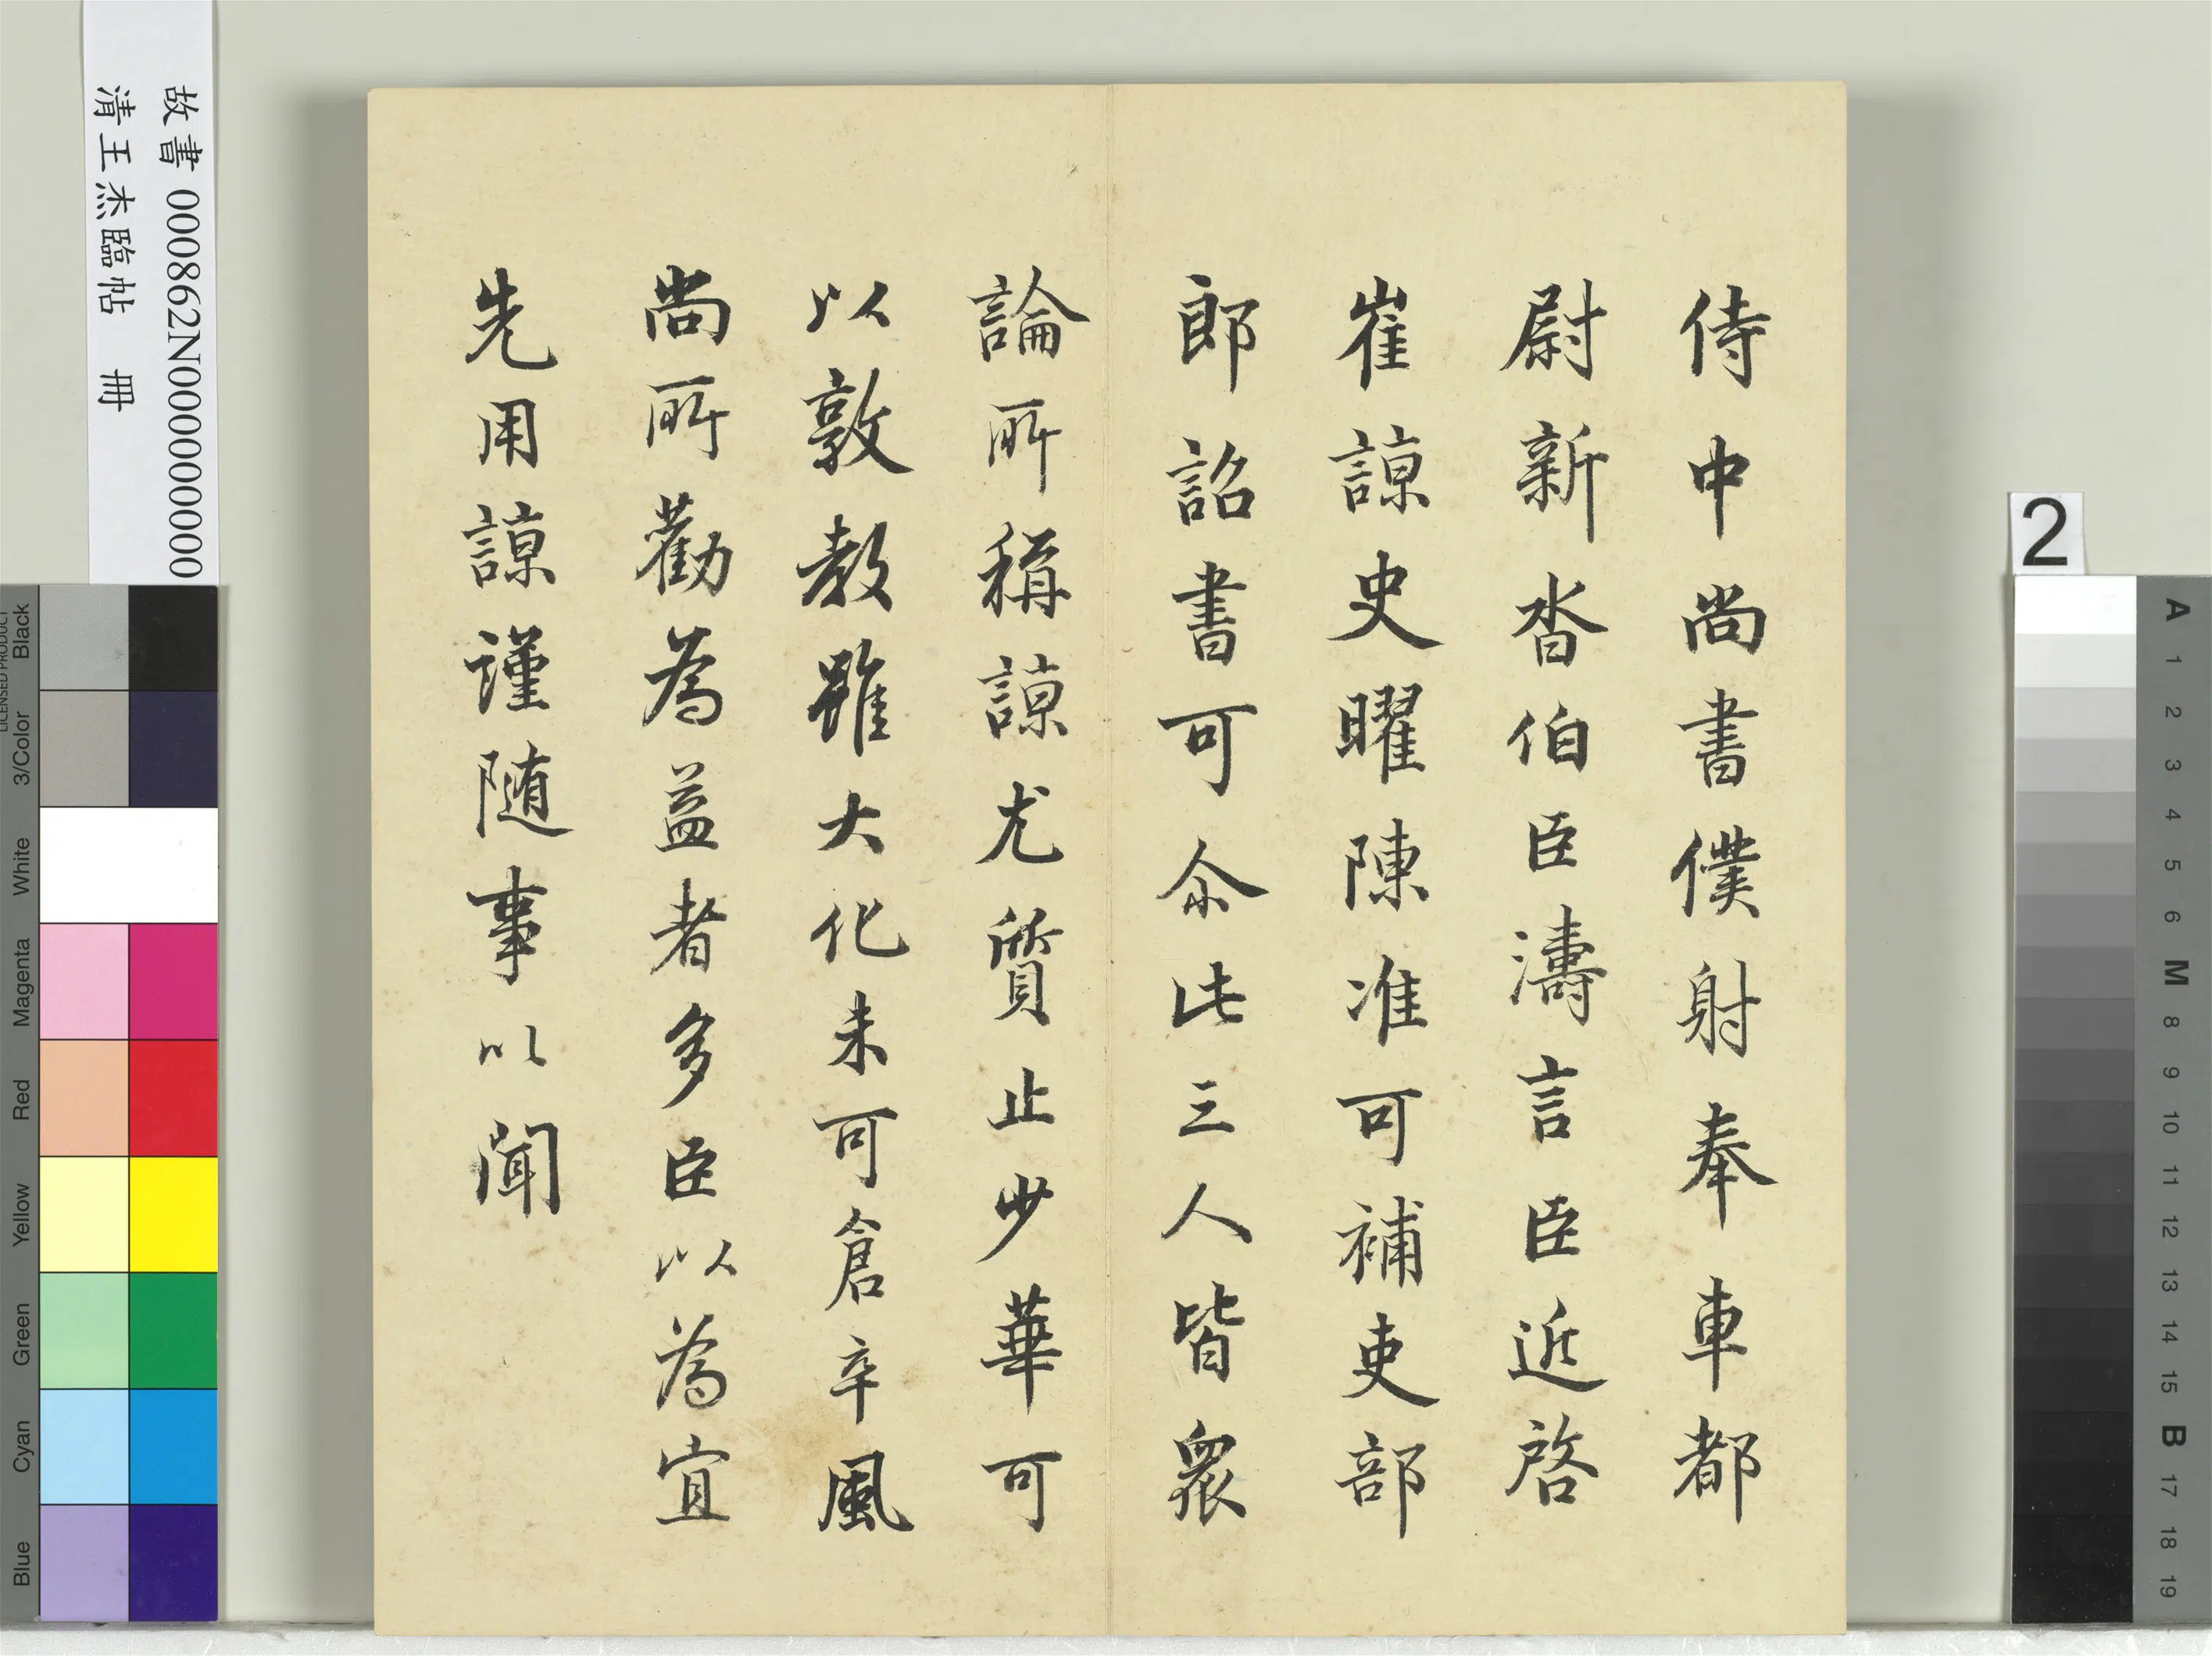 侍中尚書僕射奉車都
尉新沓伯臣濤言臣近啓
崔諒史曜陳准可補吏部
郎詔書可尒此三人皆衆
論所稱諒尤質止少華可
以敦教雖大化未可倉卒風
尚所勸為益者多臣以為宜
先用諒謹随事以聞
故書 000862N000000000
清王杰臨帖 冊
2
LICENSED PRODUCT
Black
3/Color
White
Magenta
Red
Yellow
Green
Cyan
Blue
A
1
2
3
4
5
6
M
8
9
10
11
12
13
14
15
B
17
18
19